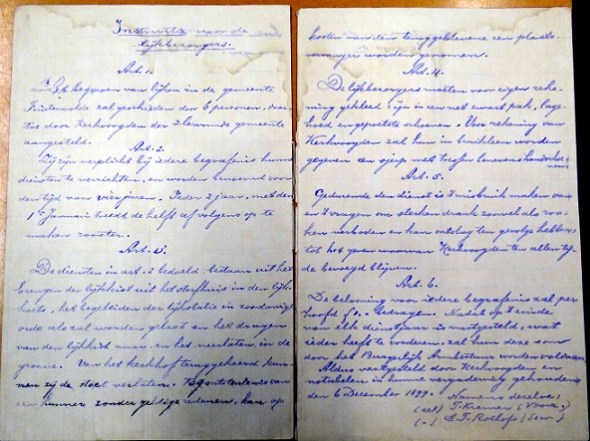 Instructie voor de
lijkbezorgers.
Art. 1.
Het begraven van lijken in de gemeente
zal geschieden door 6 personen, daar-
toe door Kerkvoogden der gemeente
aangesteld.
Art. 2.
Zij zijn verplicht bij iedere begrafenis hunne
diensten te verrichten, en worden benoemd voor
den tijd van vier jaren. Ieder 2 jaar, met den
1e Januari treedt de helft af volgens op te
maken rooster.
Art. 3.
De diensten in art. 2 bedoeld bestaan uit het
brengen der lijkkist uit het sterfhuis in den lijk-
koets, het begeleiden der lijkstatie in zoodanige
orde als zal worden gelast en het dragen
van den lijkkist naar en het neerlaten in de
groeve. Van het kerkhof teruggekeerd kun-
nen zij de stoet verlaten. Bij ontstentenis van
een hunner zonder geldige redenen, kan op
kosten van den teruggeblevene een plaats-
vervanger worden genomen.
Art. 4.
De lijkbezorgers moeten voor eigen reke-
ning gekleed zijn in een net zwart pak, lage
hoed en gepoetste schoenen. Voor rekening van
Kerkvoogden zal hun in bruikleen worden
gegeven een sjerp met benevens handschoe-
nen.
Art. 5.
Gedurende den dienst is 't misbruik maken van
en 't vragen om sterken drank zoowel als roo-
ken verboden en kan ontslag ten gevolge hebben
tot het geven waarvan Kerkvoogden ten allen tij-
de bevoegd blijven.
Art. 6.
De belooning voor iedere begrafenis zal per
hoofd bedragen. Nadat op 't einde
van elk dienstjaar is vastgesteld, wat
ieder heeft te vorderen, zal hem deze som
door het Burgerlijk Armbestuur worden voldaan.
Aldus vastgesteld door Kerkvoogden en
notabelen in hunne vergadering gehouden
den 6 December 1899.
Namens dezelve:
(get) T. Kremer (Voorz.)
(-) Roelofs (Secr.)